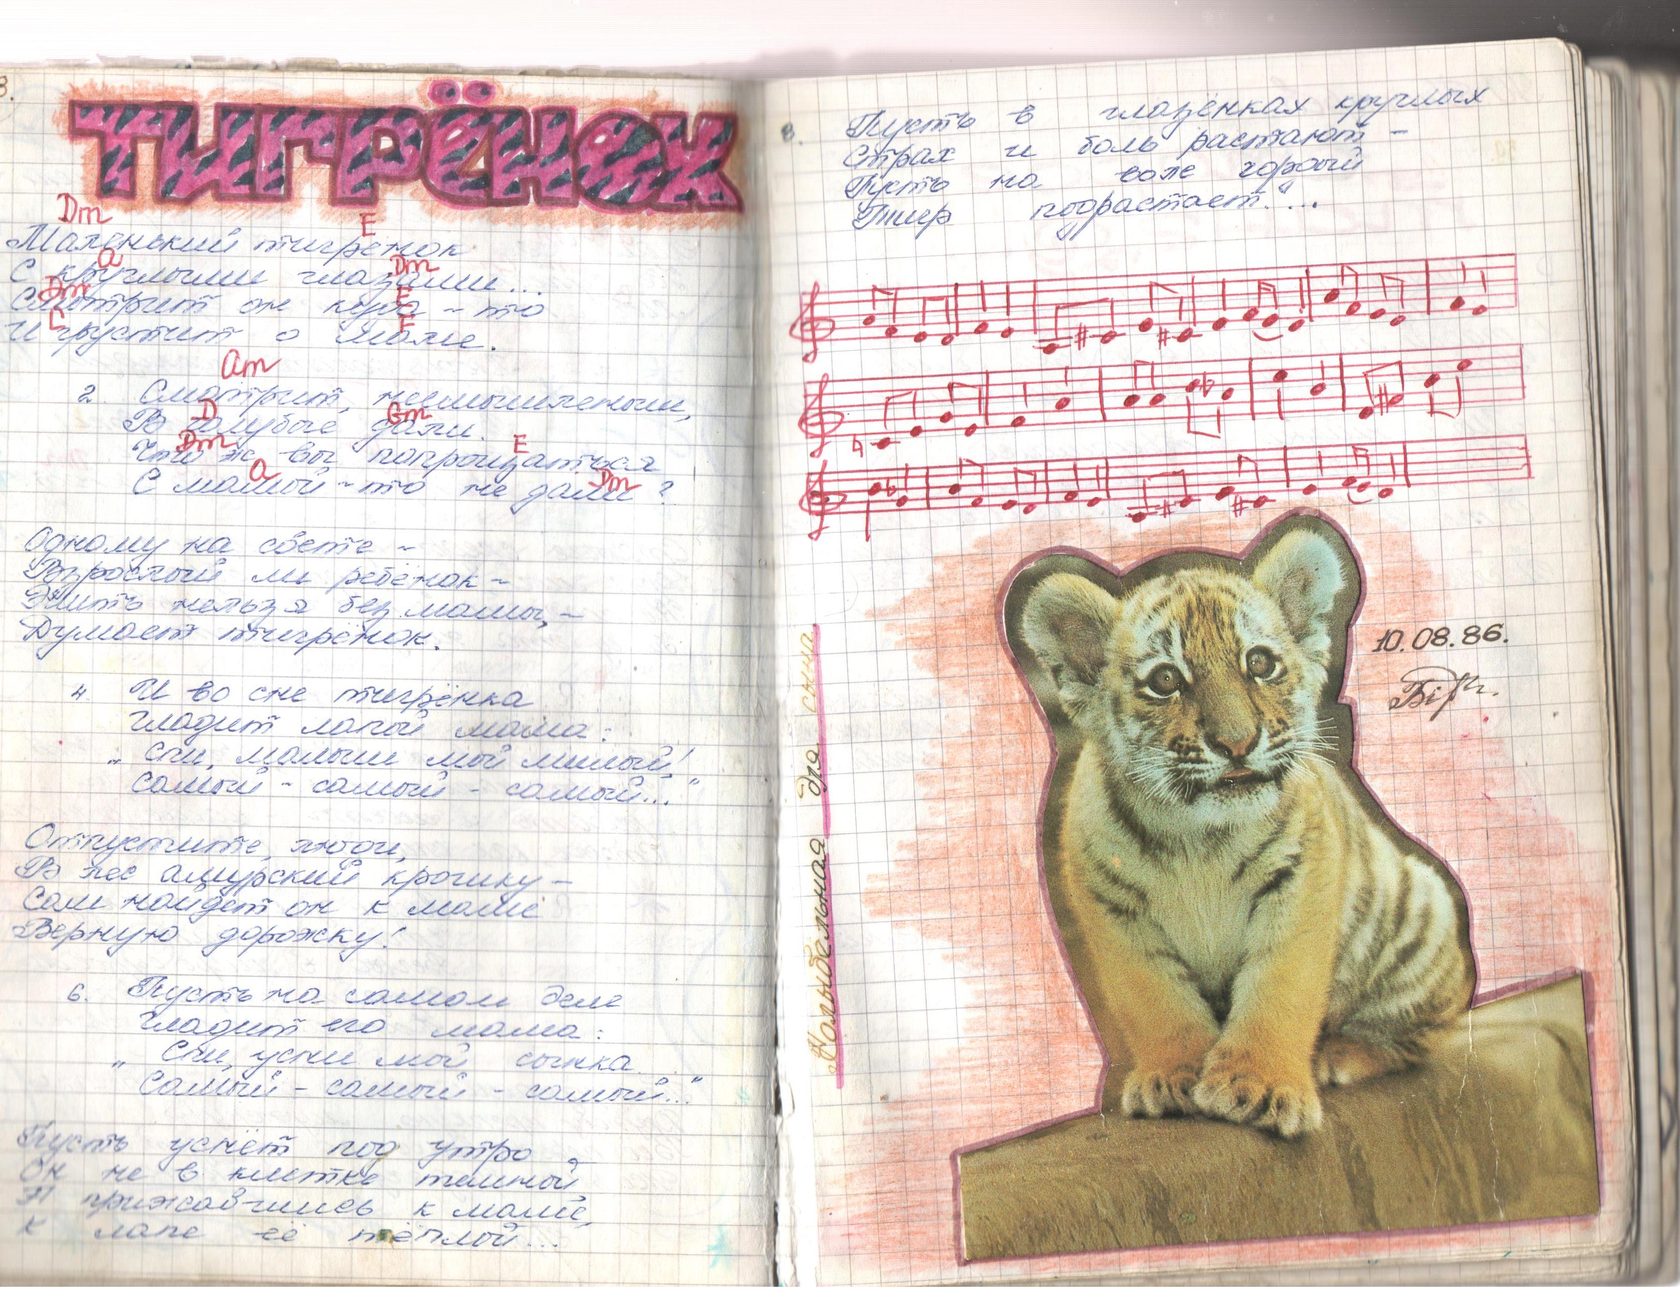 ТИГРЁНОК
Dm E
Маленький тигрёнок
A Dm
С круглыми глазами...
Dm E
Смотрит он куда-то
E
И грустит о маме.
Am
2. Смотрит, несмышлёныш,
D Gm
В голубые дали.
Dm E
Что ж вы попрощаться
A Dm
С мамой-то не дали?
Одному на свете -
Взрослый ли ребёнок -
Жить нельзя без мамы, -
Думает тигрёнок.
4. И во сне тигрёнка
гладит лапой мама:
„ Спи, малыш мой милый!
самый - самый - самый..."
Отпустите, люди,
В лес амурский крошку -
Сам найдёт он к маме
Верную дорожку!
6. Пусть на самом деле
гладит его мама:
„ Спи, усни мой сынка
Самый - самый - самый..."
Пусть уснёт под утро
Он не в клетке тёмной
А прижавшись к маме,
К лапе её тёплой...
8. Пусть в глазёнках круглых
Страх и боль растают -
Пусть на воле гордый
Тигр подрастает"...
Колыбельная для сына
10.08.86.